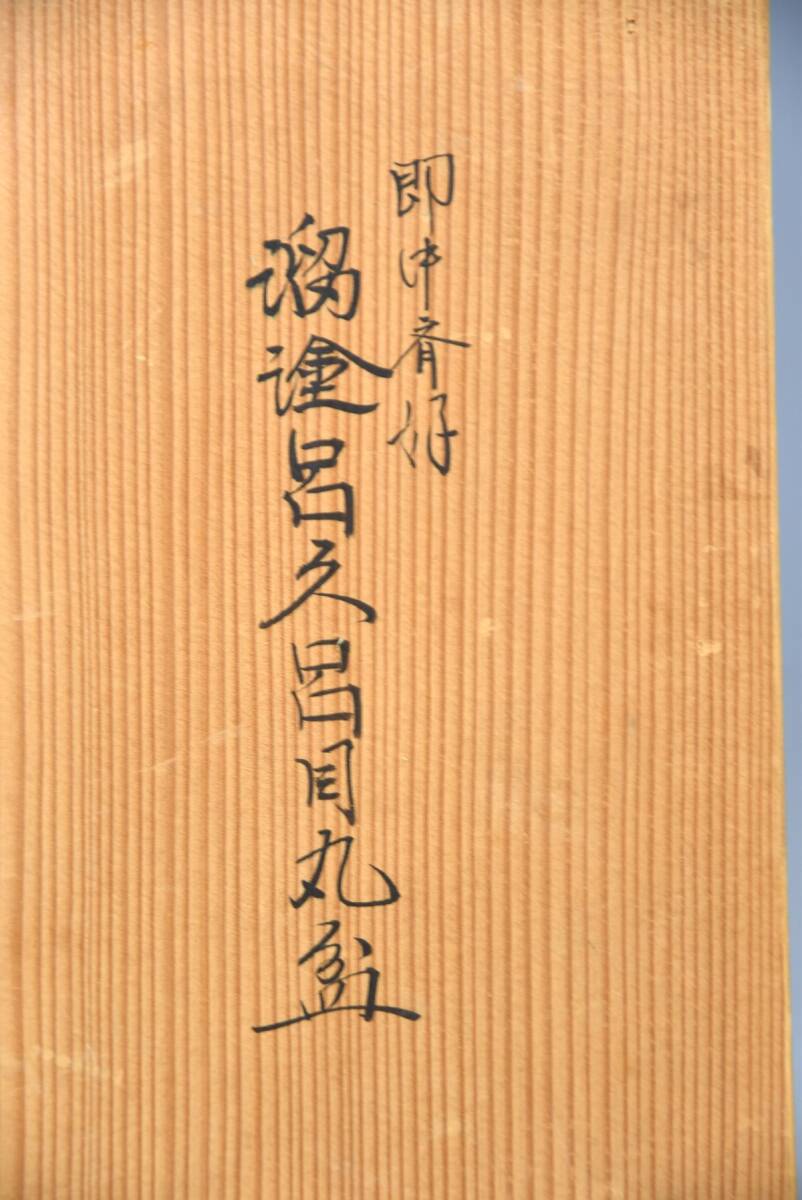 即中斉好
溜塗呂久呂目丸盆